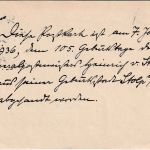 Diese Postkarte ist am 7. Ja
1936, dem 105. Geburtstage de
Heinrich v. St
aus seiner Geburtsstadt Stolp
abgesandt worden.